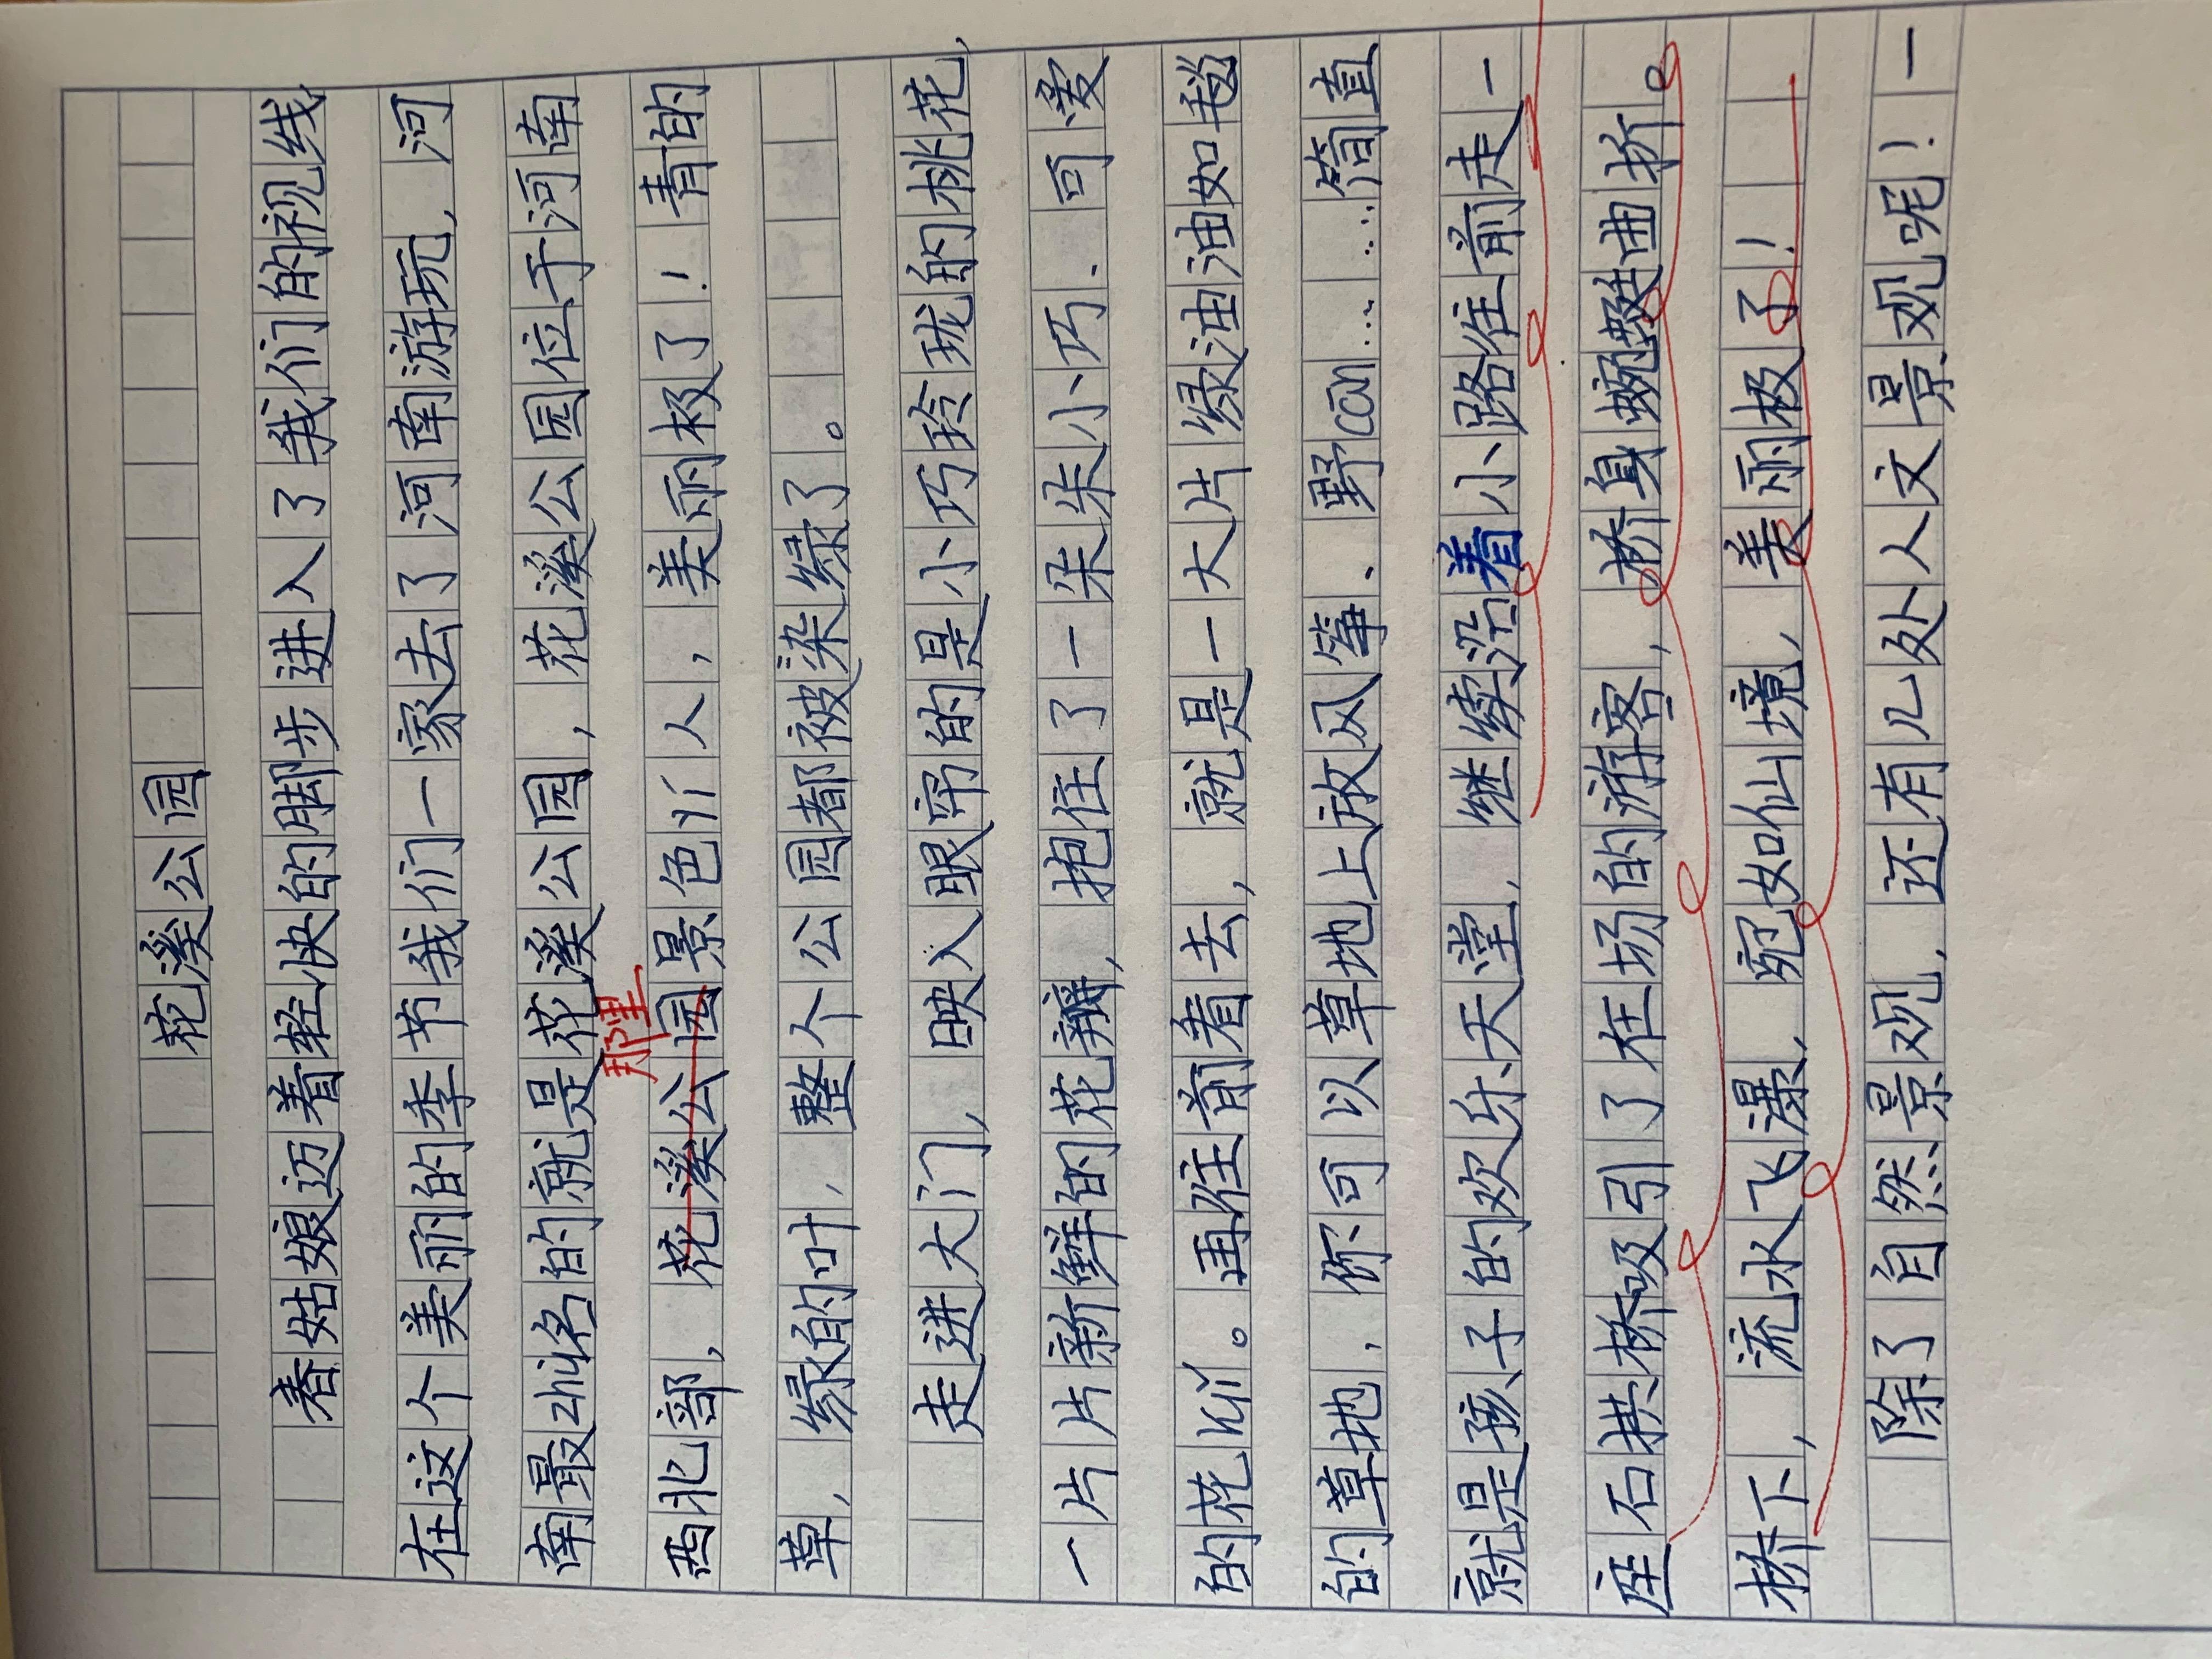 花溪公园
春姑娘迈着轻快的脚步进入了我们的视线,
在这个美丽的季节我们一家去了河南游玩,河
南最zhi名的就是花溪公园,花溪公园位于河南
那里
西北部,花溪公园景色yi人,美丽极了!青的
草,绿的叶,整个公园都被染绿了。
走进大门,映入眼帘的是小巧玲珑的桃花,
一片片新鲜的花瓣,抱住了一朵朵小巧、可爱
的花rui。再往前看去,就是一大片绿油油如毯
的草地,你可以草地上放风筝、野can……简直
就是孩子的欢乐天堂,继续沿着小路往前走一
座石拱桥吸引了在场的游客,桥身蜿蜒曲折。
桥下,流水飞瀑,宛如仙境,美丽极了!
除了自然景观,还有几处人文景观呢!一